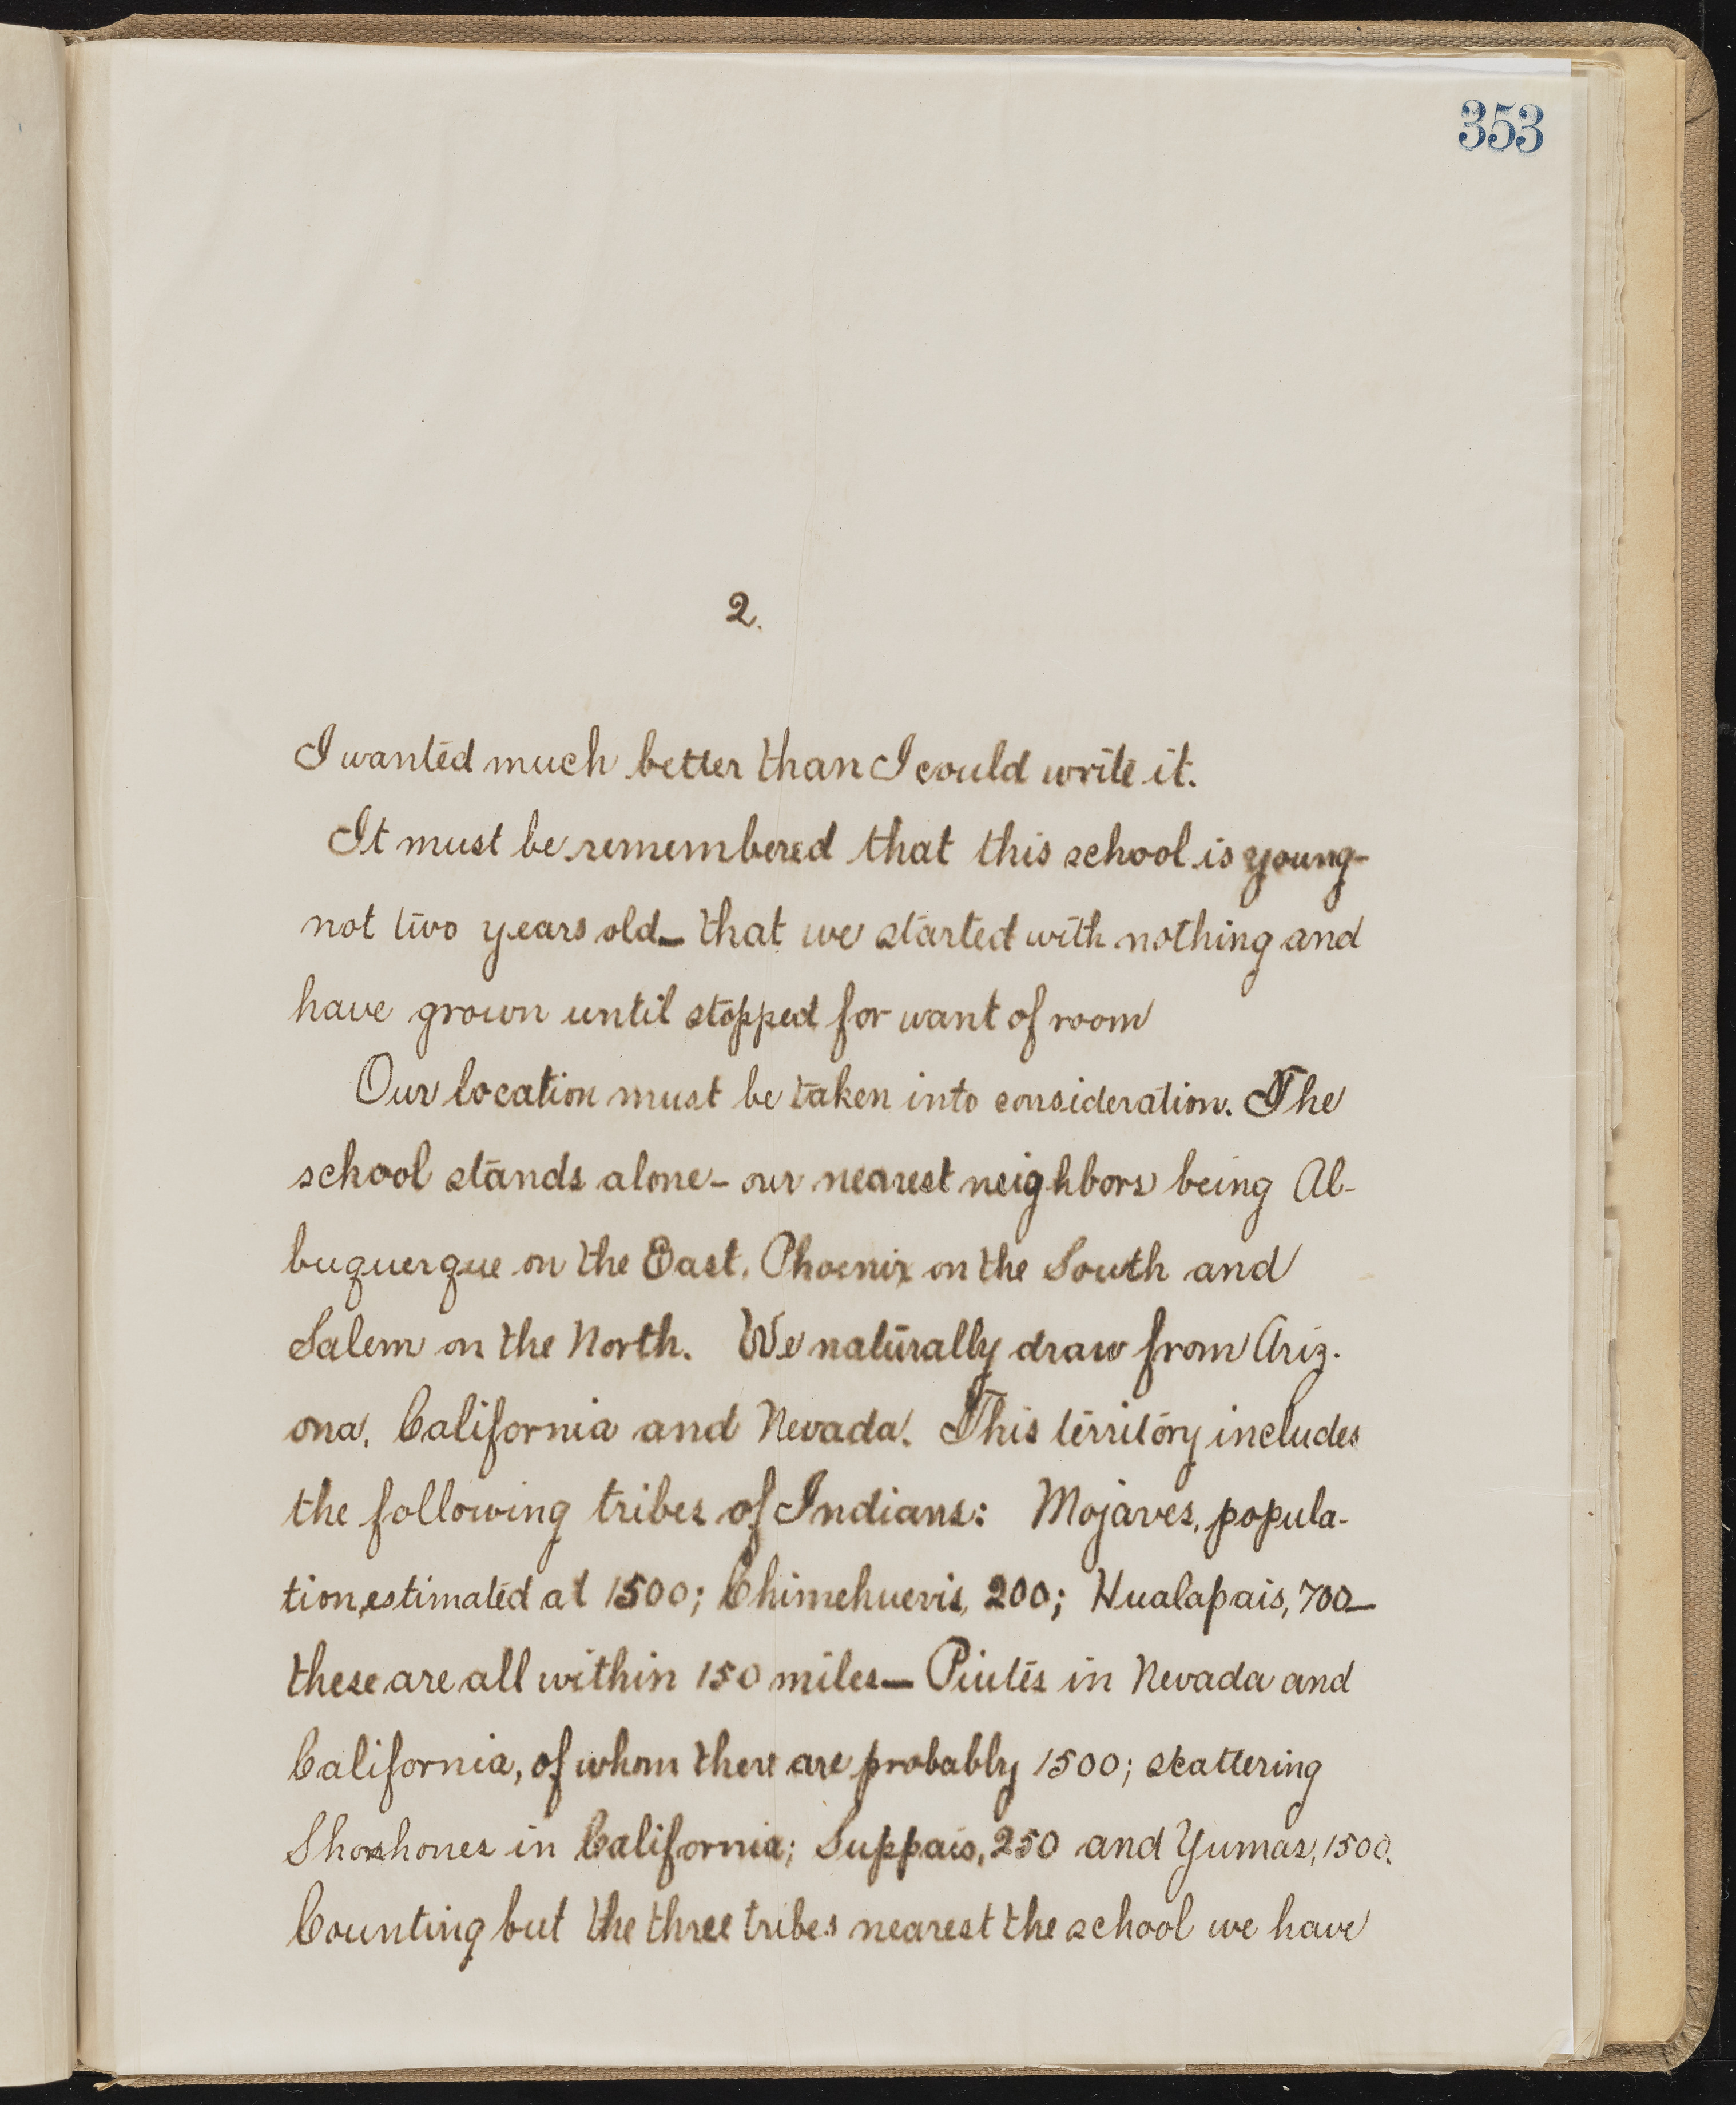 353
2.
I wanted much better than I could write it.
It must be remembered that this school is young-
not two years old - that we started with nothing and
have grown until stopped for want of room
Our location must be taken into consideration. The
school stands alone - our nearest neighbors being Al-
buquerque on the East, Phoenix on the South and
Salem on the North. We naturally draw from Ariz-
ona, California and Nevada. This territory includes
the following tribes of Indians: Mojaves, popula-
tion, estimated at 1500; Chimehuevis, 200; Hualapais, 700 -
these are all within 150 miles - Piutes in Nevada and
California, of whom there are probably 1500; scattering
Shoshones in California; Suppais, 250 and Yumas, 1500.
Counting but the three tribes nearest the school we have